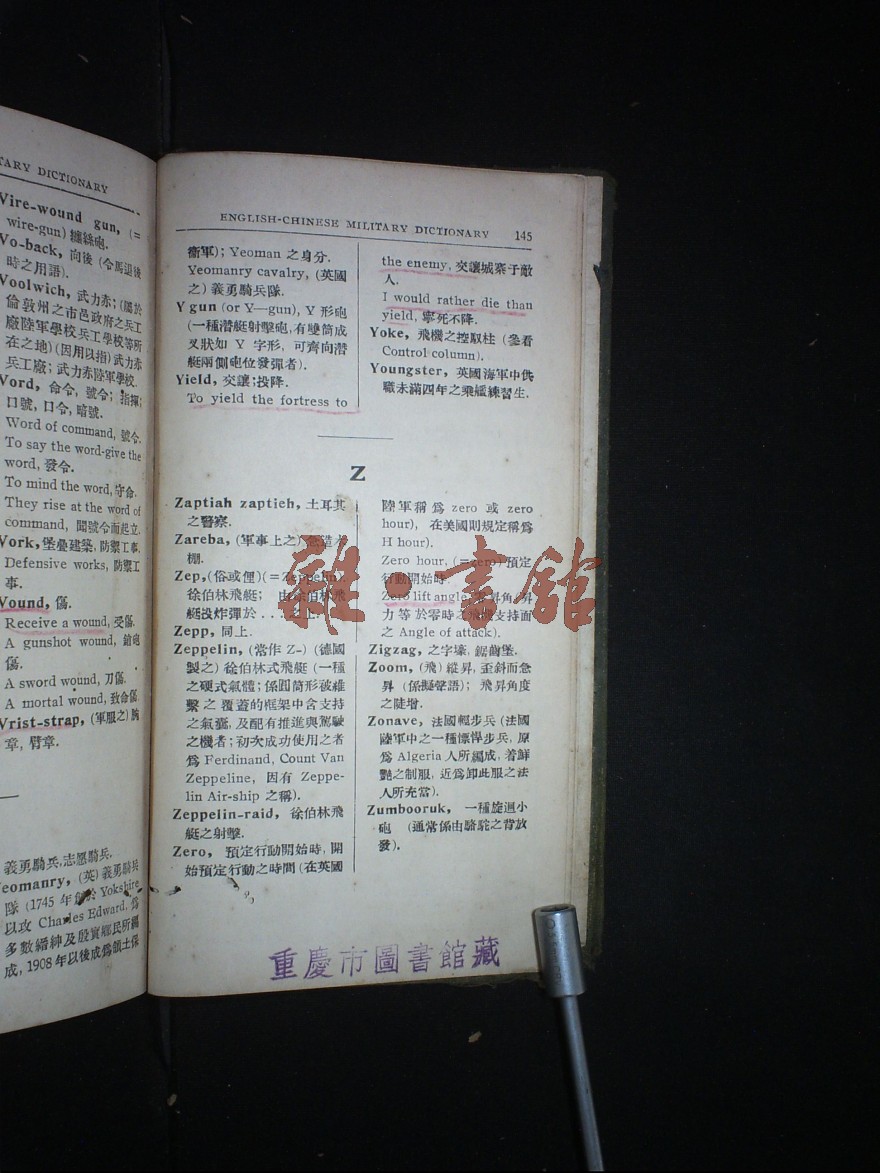 TARY DICTIONARY
Wire-wound gun, (=
wire-gun) 纏絲砲.
Wo-back, 向後 (令馬退後
時之用語).
Woolwich, 武力赤; (屬於
倫敦州之市邑政府之兵工
廠陸軍學校兵工學校等所
在之地) (因用以指) 武力赤
兵工廠; 武力赤陸軍學校.
Word, 命令, 號令; 指揮;
口號, 口令, 暗號.
Word of command, 號令.
To say the word-give the
word, 發令.
To mind the word, 守命.
They rise at the word of
command, 聞號令而起立.
Work, 堡壘建築, 防禦工事.
Defensive works, 防禦工
事.
Wound, 傷.
Receive a wound, 受傷.
A gunshot wound, 鎗砲
傷.
A sword wound, 刀傷.
A mortal wound, 致命傷.
Wrist-strap, (軍服之) 腕
章, 臂章.
義勇騎兵, 志愿騎兵.
Yeomanry, (英) 義勇騎兵
隊 (1745 年創於 Yokshire
以攻 Charles Edward, 爲
多數縉紳及殷實鄉民所編
成, 1908 年以後成爲領土保
ENGLISH-CHINESE MILITARY DICTIONARY 145
衞軍); Yeoman 之身分.
Yeomanry cavalry, (英國
之) 義勇騎兵隊.
Y gun (or Y—gun), Y 形砲
(一種潛艇射擊砲, 有雙筒成
叉狀如 Y 字形, 可齊向潛
艇兩側砲位發彈者).
Yield, 交讓; 投降.
To yield the fortress to
the enemy, 交讓城寨于敵
人.
I would rather die than
yield, 寧死不降.
Yoke, 飛機之控馭柱 (參看
Control column).
Youngster, 英國海軍中供
職未滿四年之飛艦練習生.
Z
Zaptiah zaptieh, 土耳其
之警察.
Zareba, (軍事上之) 造
棚.
Zep, (俗或俚) (=Zeppelin).
徐伯林飛艇; 由徐伯林飛
艇投炸彈於...之上.
Zepp, 同上.
Zeppelin, (常作 Z-) (德國
製之) 徐伯林式飛艇 (一種
之硬式氣體; 係圓筒形被維
繫之覆蓋的框架中含支持
之氣囊, 及配有推進與駕駛
之機者; 初次成功使用之者
爲 Ferdinand, Count Van
Zeppeline, 因有 Zeppe-
lin Air-ship 之稱).
Zeppelin-raid, 徐伯林飛
艇之射擊.
Zero, 預定行動開始時, 開
始預定行動之時間 (在英國
陸軍稱爲 zero 或 zero
hour), 在美國則規定稱爲
H hour).
Zero hour, (=zero) 預定
行動開始時.
Zero lift angle, 昇角 (昇
力等於零時之飛機支持面
之 Angle of attack).
Zigzag, 之字壕, 鋸齒堡.
Zoom, (飛) 縱昇, 歪斜而急
昇 (係擬聲語); 飛昇角度
之陡增.
Zonave, 法國輕步兵 (法國
陸軍中之一種慓悍步兵, 原
爲 Algeria 人所編成, 着鮮
艷之制服, 近爲卸此服之法
人所充當).
Zumbooruk, 一種旋迴小
砲 (通常係由駱駝之背放
發).
雜·書館
重慶市圖書館藏